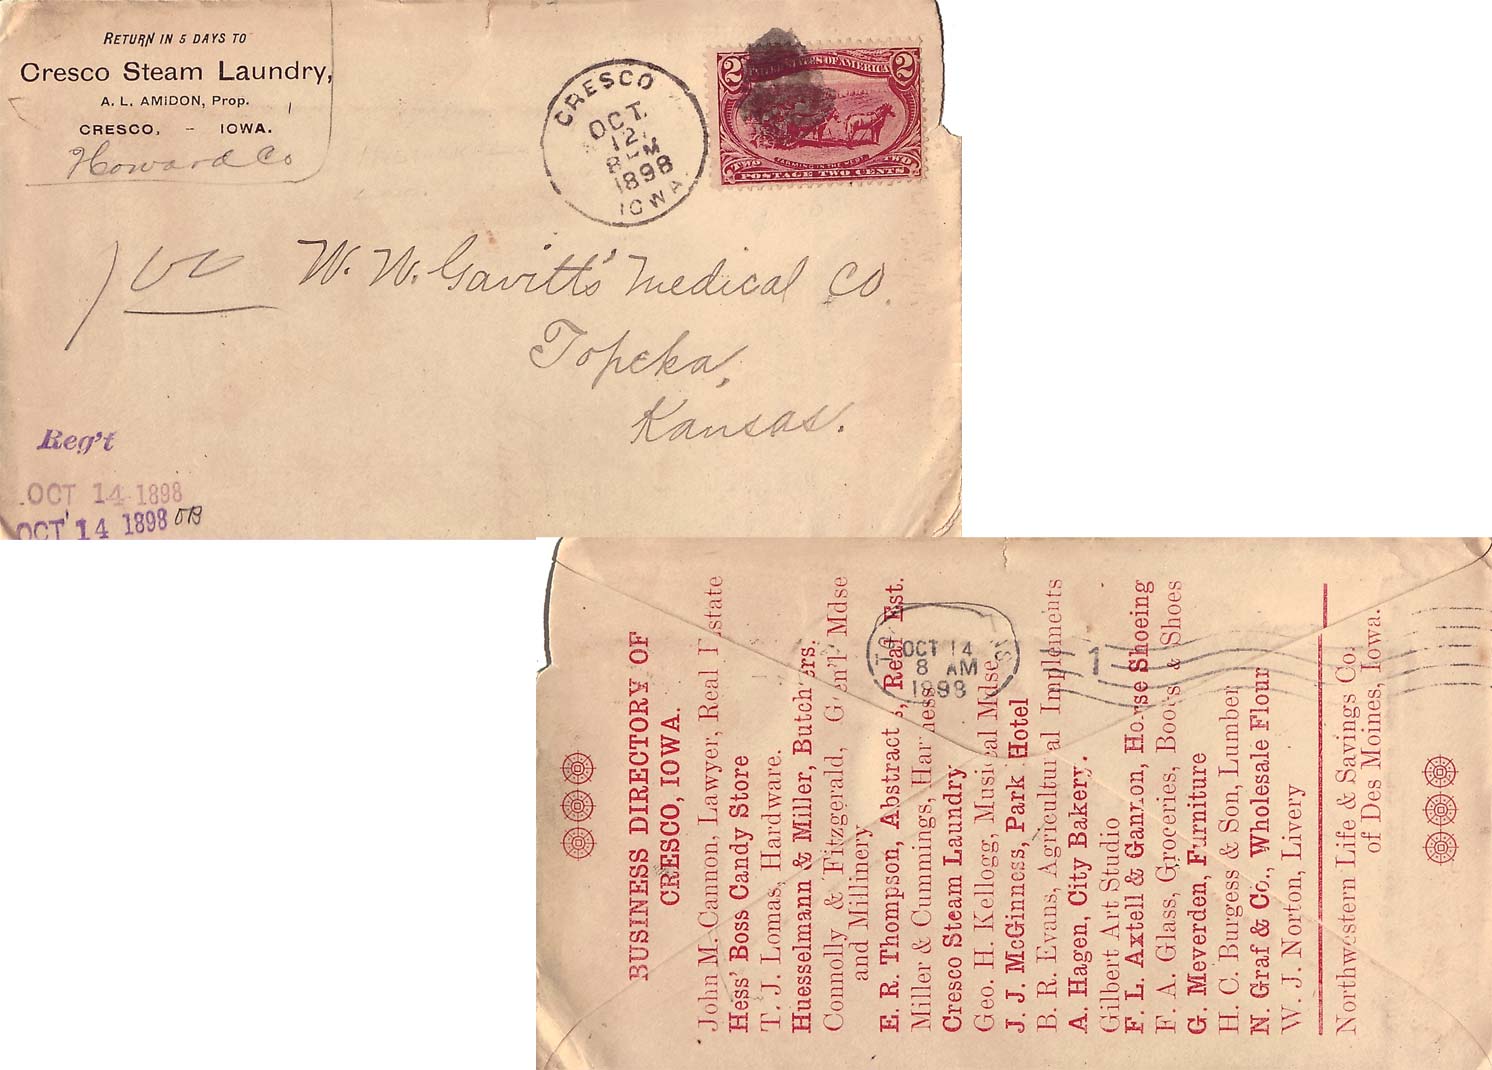 RETURN IN 5 DAYS TO
Cresco Steam Laundry,
A. L. AMIDON, Prop.
CRESCO, - IOWA.
Howard Co
CRESCO
OCT.
12,
8 PM
1898
IOWA
2 UNITED STATES OF AMERICA 2
FARMING IN THE WEST
TWO TWO
POSTAGE TWO CENTS
W. W. Gavitt's Medical Co.
Topeka,
Kansas.
Reg't
OCT 14 1898
OCT 14 1898
BUSINESS DIRECTORY OF
CRESCO, IOWA.
John M. Cannon, Lawyer, Real Estate
Hess' Boss Candy Store
T. J. Lomas, Hardware.
Huesselmann & Miller, Butchers.
Connolly & Fitzgerald, Gen'l Mdse
and Millinery
E. R. Thompson, Abstracts, Real Est.
Miller & Cummings, Harness
Cresco Steam Laundry
Geo. H. Kellogg, Musical Mdse.
J. J. McGinness, Park Hotel
B. R. Evans, Agricultural Implements
A. Hagen, City Bakery.
Gilbert Art Studio
F. L. Axtell & Gannon, Horse Shoeing
F. A. Glass, Groceries, Boots & Shoes
G. Meverden, Furniture
H. C. Burgess & Son, Lumber
N. Graf & Co., Wholesale Flour
W. J. Norton, Livery
Northwestern Life & Savings Co.
of Des Moines, Iowa.
OCT 14
8 AM
1898
1